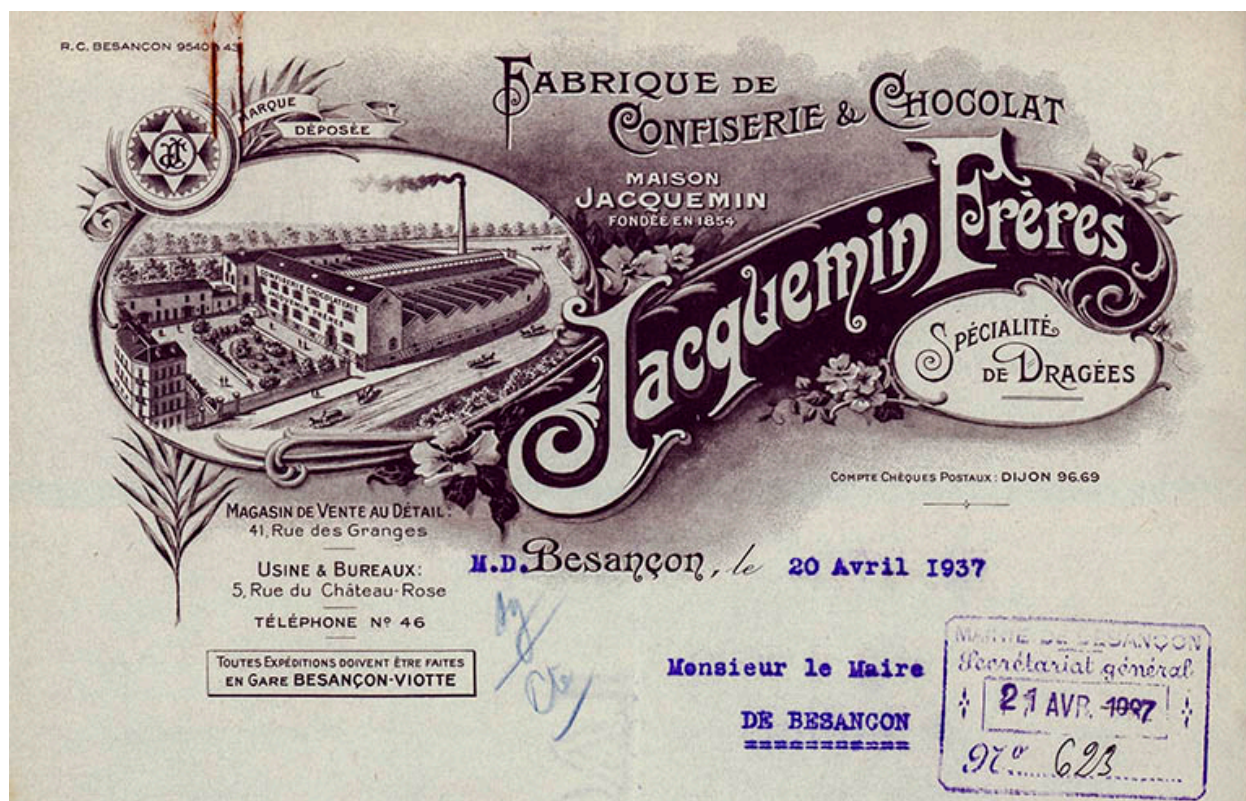 R.C. BESANÇON 9540 43
MARQUE
DÉPOSÉE
FABRIQUE DE
CONFISERIE & CHOCOLAT
MAISON
JACQUEMIN
FONDÉE EN 1854
Jacquemin Frères
SPÉCIALITÉ
DE DRAGÉES
CONFISERIE CHOCOLATERIE
JACQUEMIN FRÈRES
COMPTE CHÈQUES POSTAUX: DIJON 96.69
MAGASIN DE VENTE AU DÉTAIL:
41, Rue des Granges
USINE & BUREAUX:
5, Rue du Château-Rose
TÉLÉPHONE Nº 46
TOUTES EXPÉDITIONS DOIVENT ÊTRE FAITES
EN GARE BESANÇON-VIOTTE
M.D. Besançon, le 20 Avril 1937
Monsieur le Maire
DE BESANCON
MAIRIE DE BESANÇON
Secrétariat général
21 AVR. 1937
Nº 623